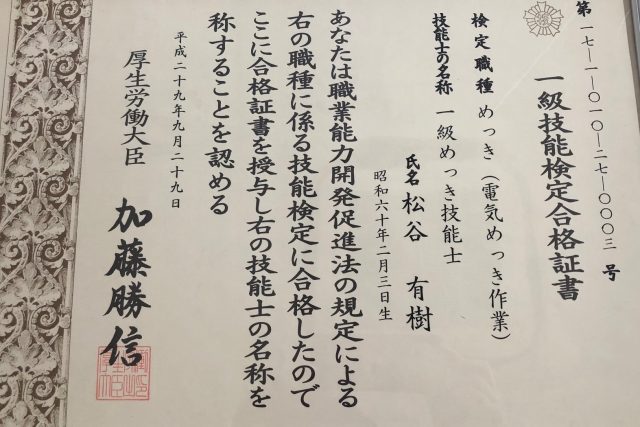 第一七-一-〇一〇-二七-〇〇〇三号
一級技能検定合格証書
検定職種 めっき(電気めっき作業)
技能士の名称 一級めっき技能士
氏名 松谷 有樹
昭和六十年二月三日生
あなたは職業能力開発促進法の規定による
右の職種に係る技能検定に合格したので
ここに合格証書を授与し右の技能士の名称を
称することを認める
平成二十九年九月二十九日
厚生労働大臣 加藤勝信